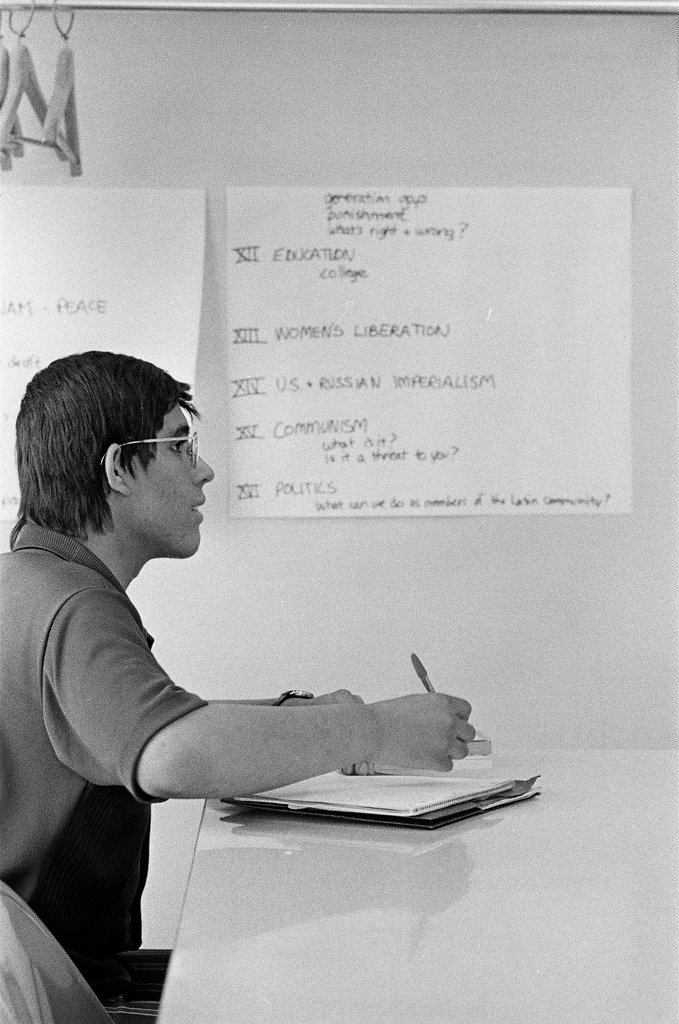 NAM - PEACE
draft
generation gap
punishment
what's right + wrong?
XII EDUCATION
college
XIII WOMEN'S LIBERATION
XIV U.S + RUSSIAN IMPERIALISM
XV COMMUNISM
what is it?
is it a threat to you?
XVI POLITICS
what can we do as members of the Latin Community?